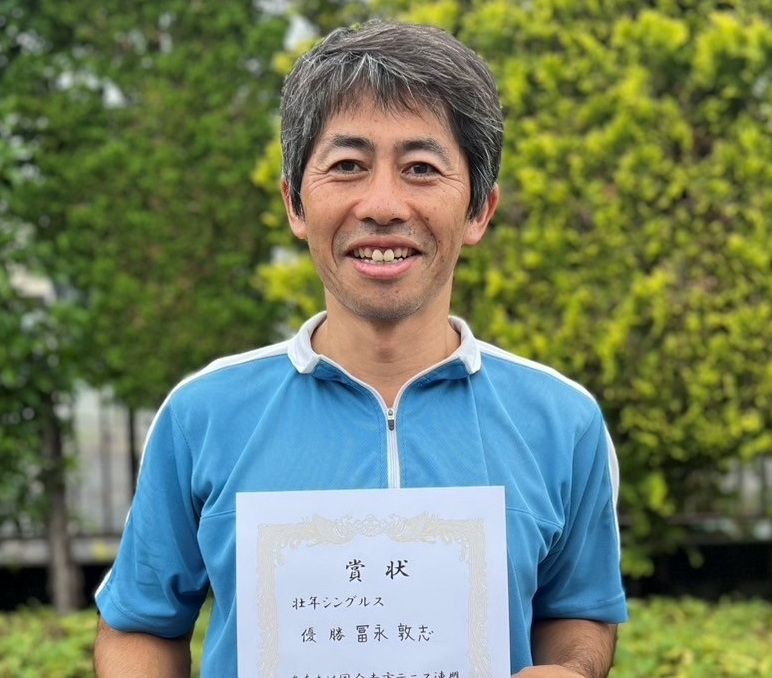 賞状
壮年シングルス
優勝 冨永敦志